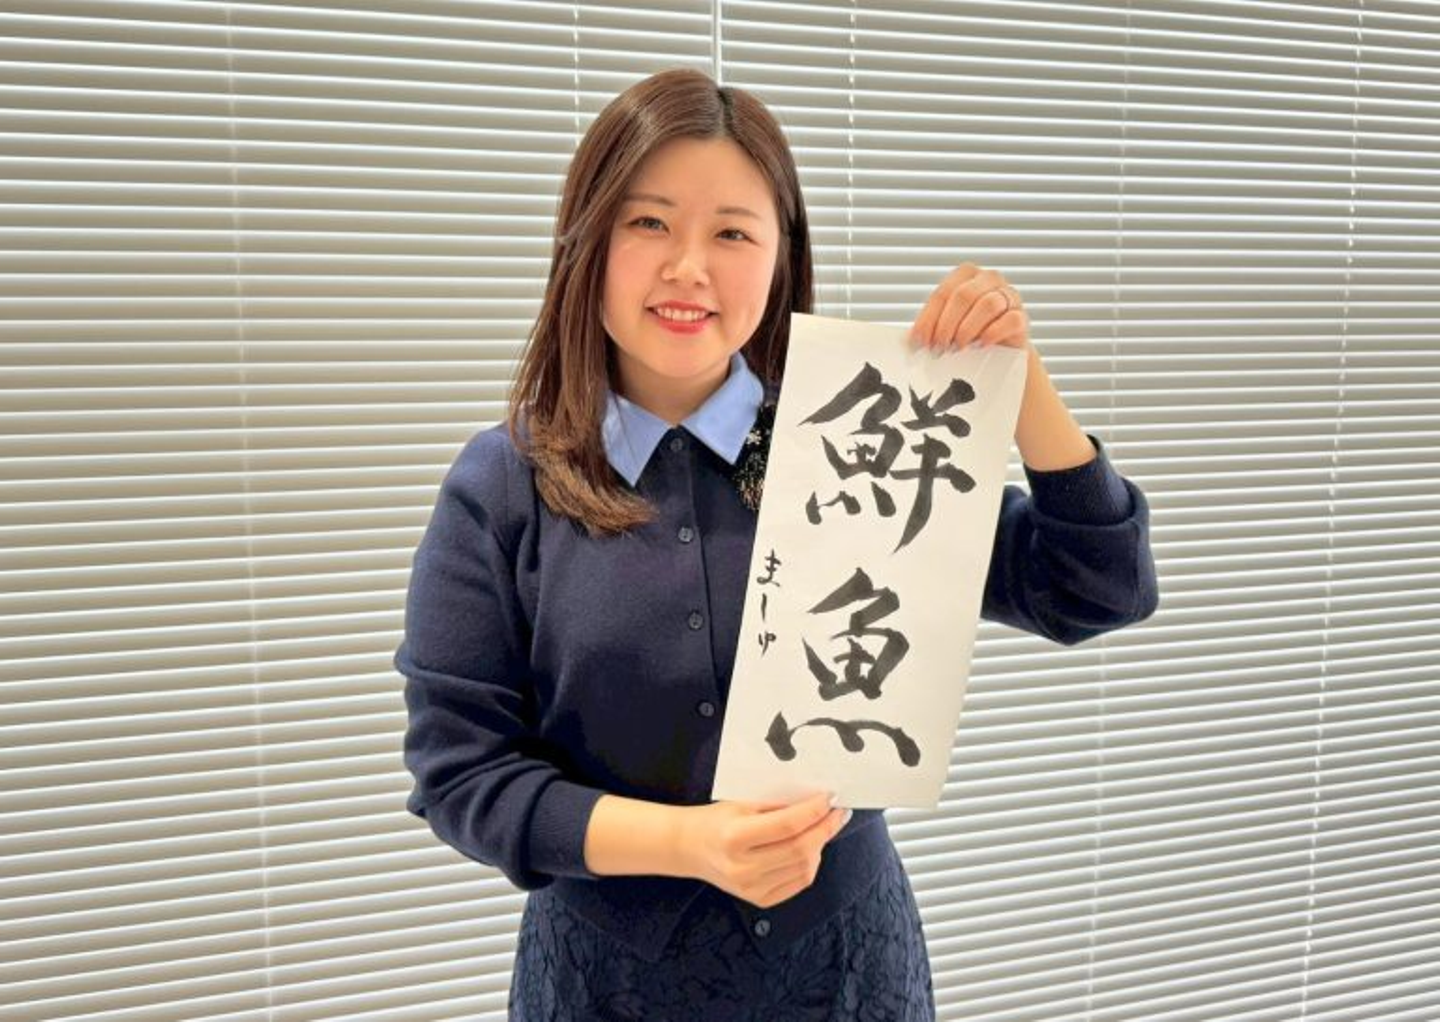 鮮魚
ましゅ